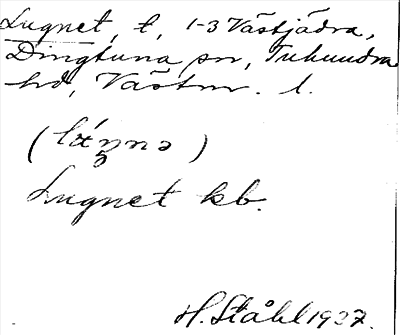 Lugnet, t, 1-3 Västjädra,
Dingtuna sn, Tuhundra
hd, Västm. l.
Lugnet kb.
H. Ståhl 1927.